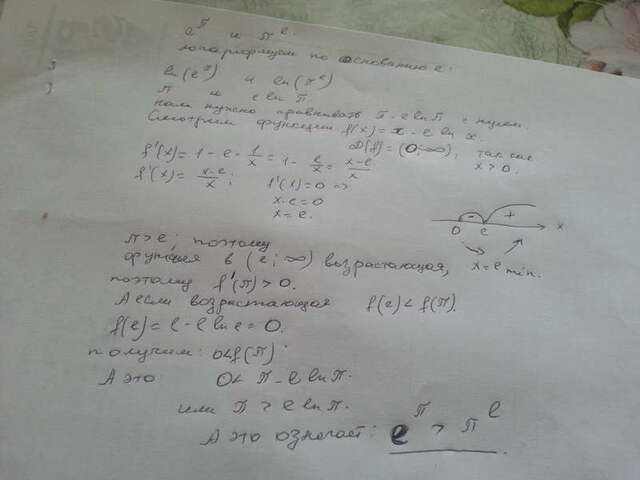 e^π и π^e.
логарифмуем по основанию e:
ln(e^π) и ln(π^e)
π и e ln π.
нам нужно сравнивать π - e ln π с нулем.
Смотрим функцию f(x) = x - e ln x.
D(f) = (0; ∞), так как x > 0.
f'(x) = 1 - e · 1/x = 1 - e/x = x-e/x.
f'(x) = x-e/x; f'(x) = 0 ⇒
x - e = 0
x = e.
- +
0 e x
x = e min.
π > e, поэтому
функция в (e; ∞) возрастающая,
поэтому f'(π) > 0.
А если возрастающая f(e) < f(π).
f(e) = e - e ln e = 0.
получим: 0 < f(π).
А это 0 < π - e ln π.
или π > e ln π.
А это означает: e^π > π^e.